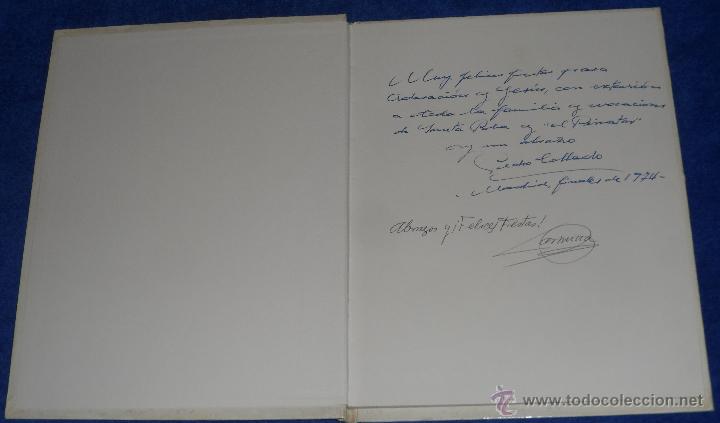 Muy felices fiestas para
Adoración y Jesús, con extensión
a toda la familia y vocaciones
de Punta Puba y "el Pinatar"
y un abrazo
Pedro Collado
Madrid, finales de 1974-
Abrazos y ¡Felices Fiestas!
www.todocoleccion.net